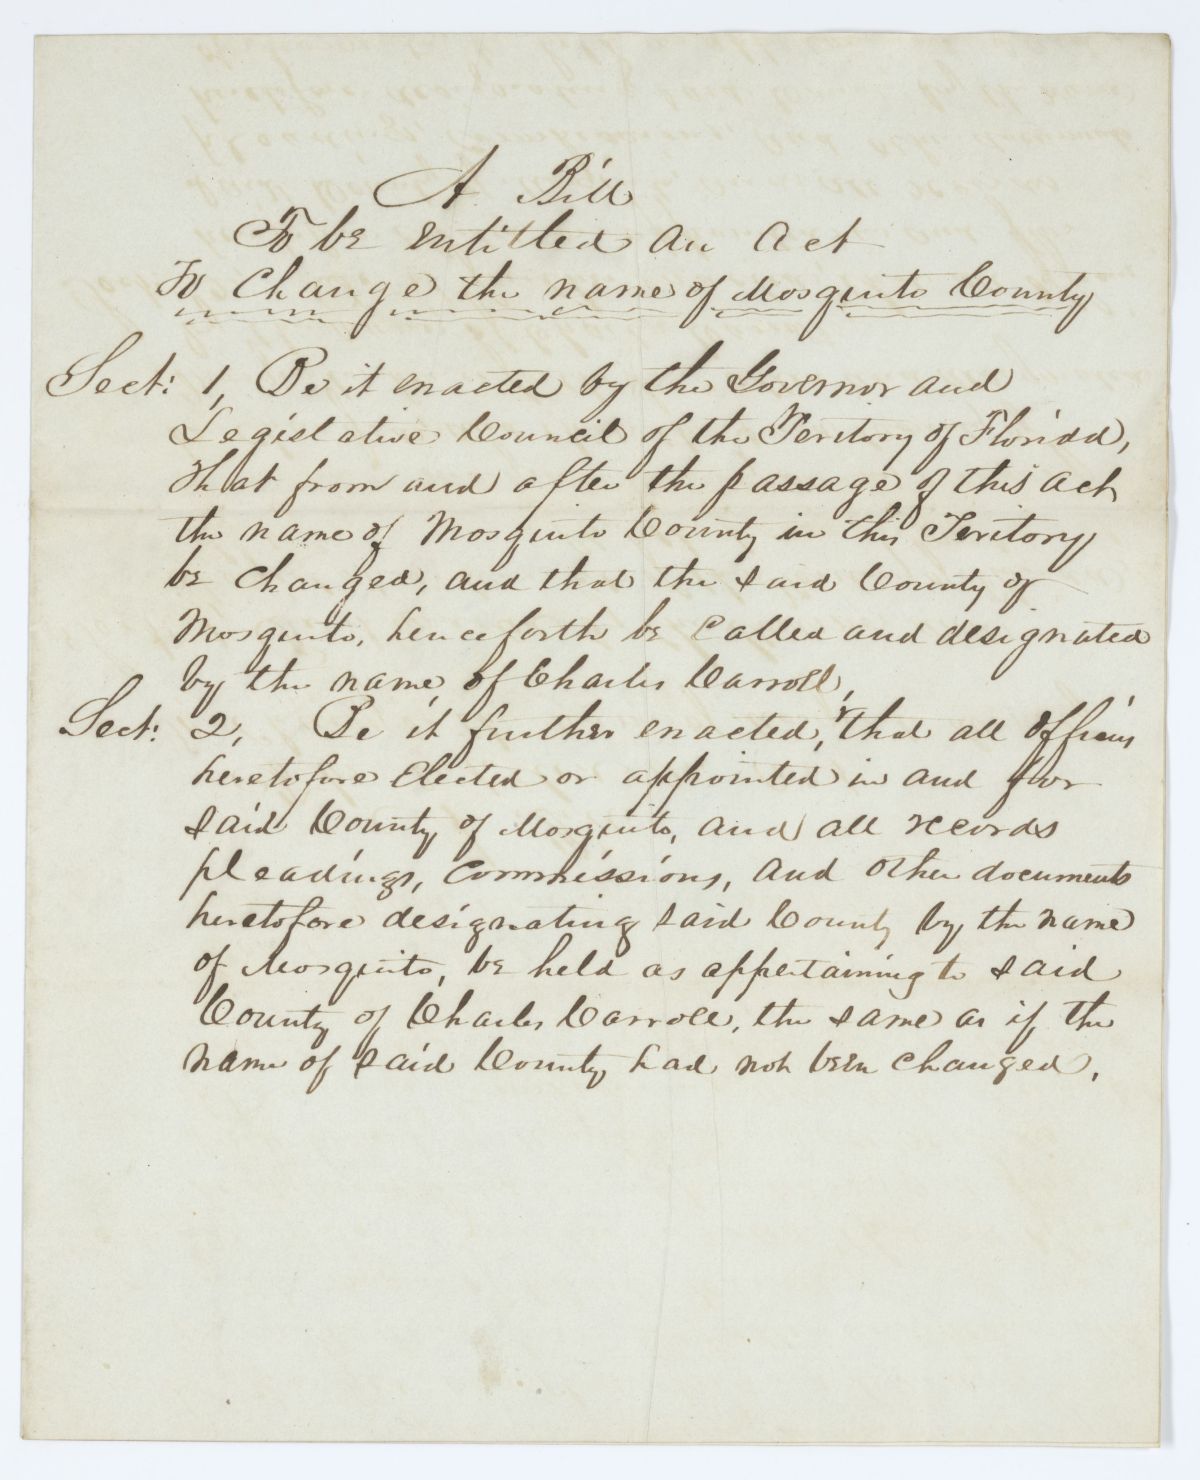 A Bill
To be entitled an act
To Change the name of Mosquito County
Sect: 1, Be it enacted by the Governor and
Legislative Council of the Teritory of Florida,
that from and after the passage of this act
the name of Mosquito County in this Teritory
be Changed, and that the said County of
Mosquito, henceforth be Called and designated
by the name of Charles Carroll,
Sect: 2, Be it further enacted, that all officers
heretofore Elected or appointed in and for
said County of Mosquito, and all records
pleadings, commissions, and other documents
heretofore designating said County by the name
of Mosquito, be held as appertaining to said
County of Charles Carroll, the same as if the
name of said County had not been Changed.